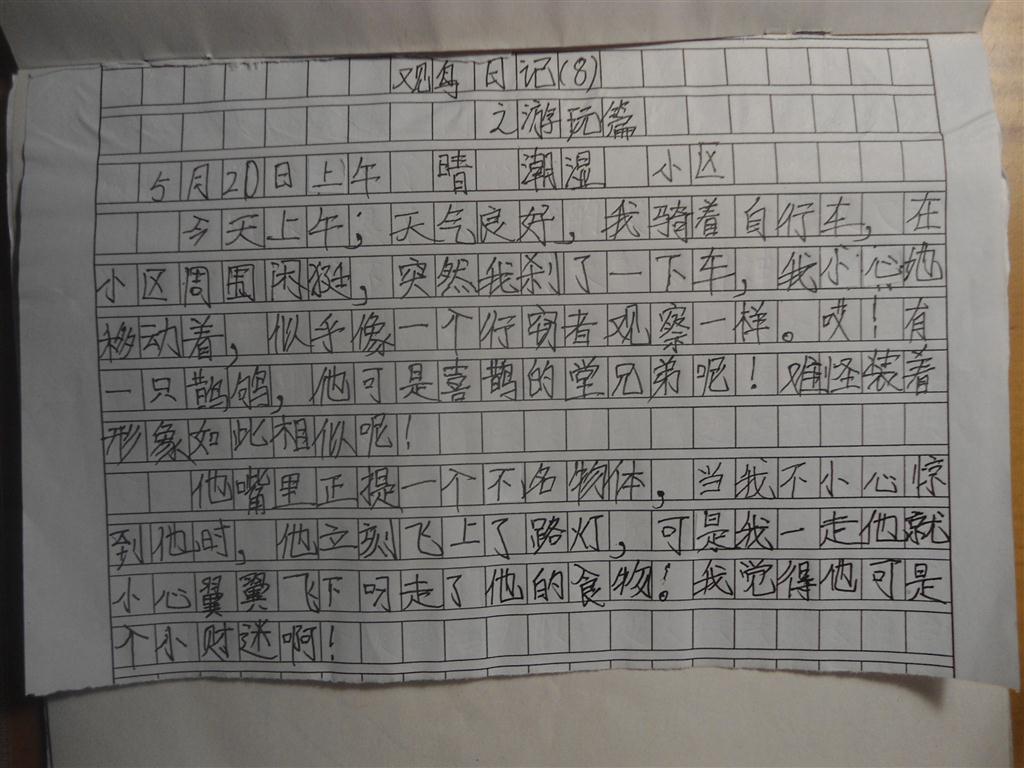 观鸟日记(8)
之游玩篇
5月20日上午 晴 潮湿 小区
今天上午，天气良好，我骑着自行车，在
小区周围闲逛，突然我刹了一下车，我小心地
移动着，似乎像一个行窃者观察一样。哎！有
一只鹊鸲，他可是喜鹊的堂兄弟呢！难怪装着
形象如此相似呢！
他嘴里正提一个不名物体，当我不小心惊
到他时，他立刻飞上了路灯，可是我一走他就
小心翼翼飞下叼走了他的食物！我觉得他可是
个小财迷啊！